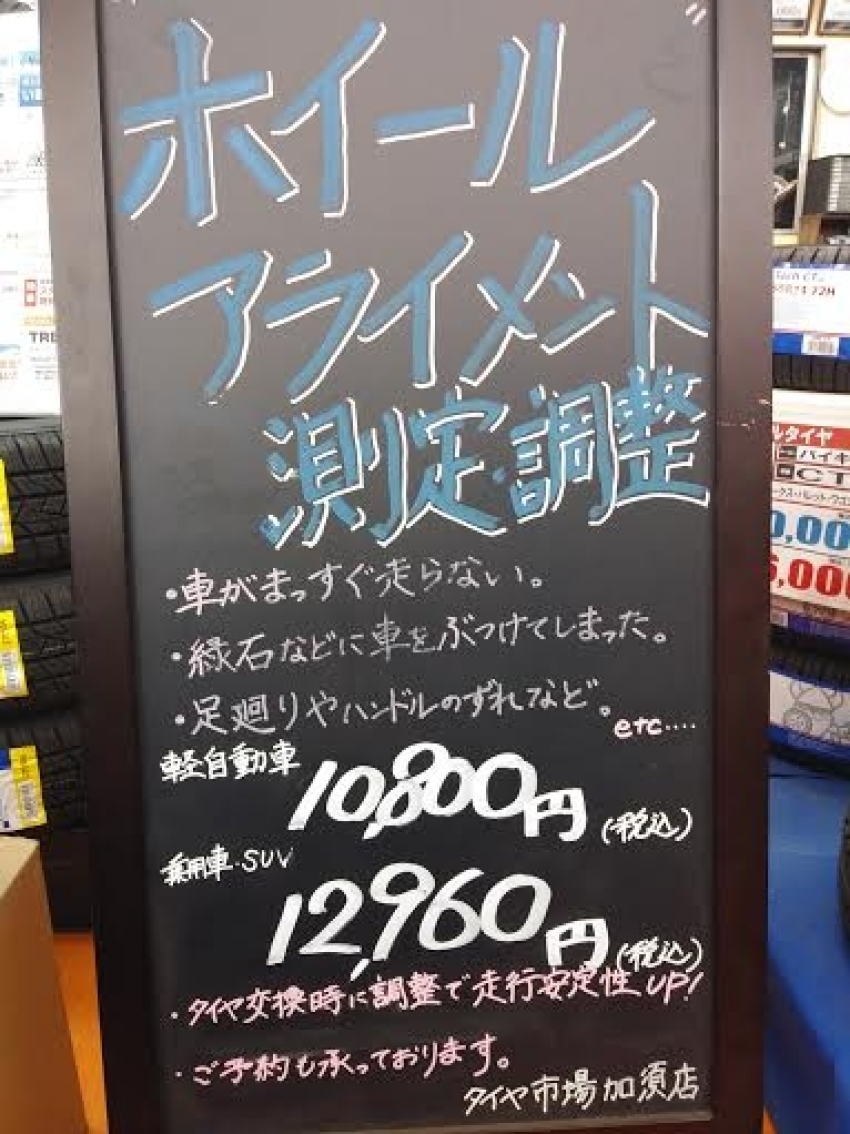 ホイール
アライメント
測定・調整
・車がまっすぐ走らない。
・縁石などに車をぶつけてしまった。
・足廻りやハンドルのずれなど。
etc....
軽自動車
10,800円(税込)
乗用車・SUV
12,960円(税込)
・タイヤ交換時に調整で走行安定性UP!
・ご予約も承っております。
タイヤ市場加須店
ルタイヤ